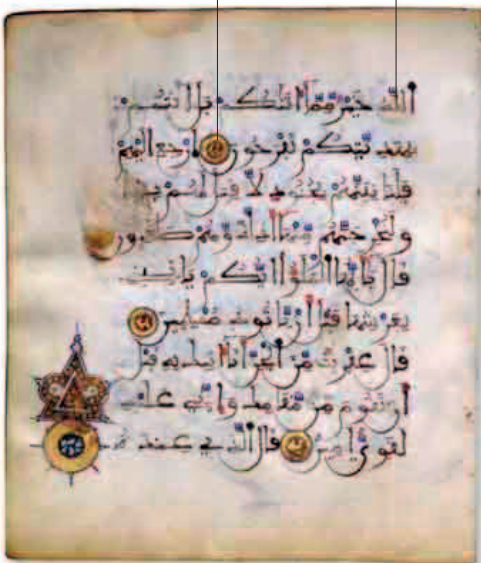 اللّه خَيْرٌ مِّمَّا اتيكُم بَلَ انتُم
بهديّتكم تفرحون ارجع اليهم
فلناتينّهم بجنود لا قبل لهم بها
ولنخرجنّهم منها اذلّة وهم صغرون
قال يايها الملؤا ايّكم ياتينى
بعرشها قبل ان ياتونى مسلمين
قال عفريت من الجن انا اتيك به قبل
ان تقوم من مقامك وانّى عليه
لقوىّ امين قال الذى عنده